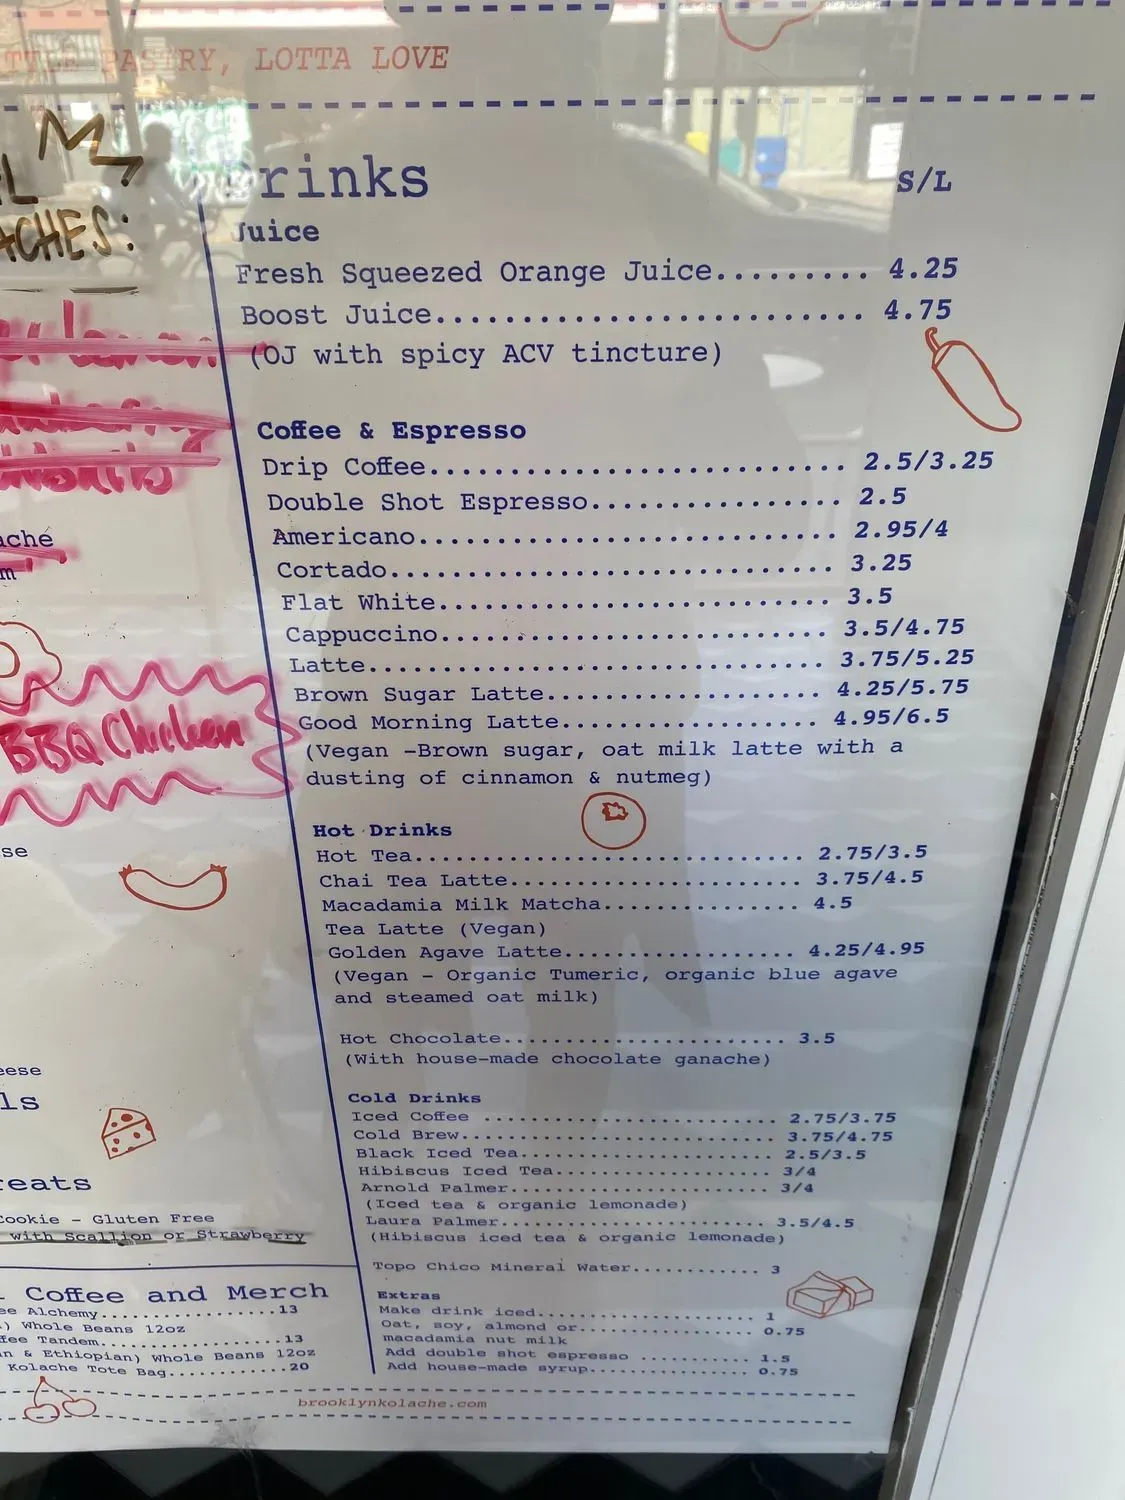 TTLE PASTRY, LOTTA LOVE
ACHES:
ache
m
BBQ Chicken
se
eese
ls
reats
Cookie – Gluten Free
with Scallion or Strawberry
Coffee and Merch
ee Alchemy....................13
) Whole Beans 12oz
fee Tandem....................13
n & Ethiopian) Whole Beans 12oz
Kolache Tote Bag..............20
Drinks S/L
Juice
Fresh Squeezed Orange Juice......... 4.25
Boost Juice......................... 4.75
(OJ with spicy ACV tincture)
Coffee & Espresso
Drip Coffee.......................... 2.5/3.25
Double Shot Espresso................ 2.5
Americano........................... 2.95/4
Cortado............................. 3.25
Flat White.......................... 3.5
Cappuccino.......................... 3.5/4.75
Latte............................... 3.75/5.25
Brown Sugar Latte................... 4.25/5.75
Good Morning Latte.................. 4.95/6.5
(Vegan –Brown sugar, oat milk latte with a
dusting of cinnamon & nutmeg)
Hot Drinks
Hot Tea............................. 2.75/3.5
Chai Tea Latte...................... 3.75/4.5
Macadamia Milk Matcha............... 4.5
Tea Latte (Vegan)
Golden Agave Latte.................. 4.25/4.95
(Vegan – Organic Tumeric, organic blue agave
and steamed oat milk)
Hot Chocolate....................... 3.5
(With house-made chocolate ganache)
Cold Drinks
Iced Coffee ........................ 2.75/3.75
Cold Brew........................... 3.75/4.75
Black Iced Tea...................... 2.5/3.5
Hibiscus Iced Tea................... 3/4
Arnold Palmer....................... 3/4
(Iced tea & organic lemonade)
Laura Palmer........................ 3.5/4.5
(Hibiscus iced tea & organic lemonade)
Topo Chico Mineral Water............ 3
Extras
Make drink iced..................... 1
Oat, soy, almond or................. 0.75
macadamia nut milk
Add double shot espresso ........... 1.5
Add house-made syrup................ 0.75
brooklynkolache.com